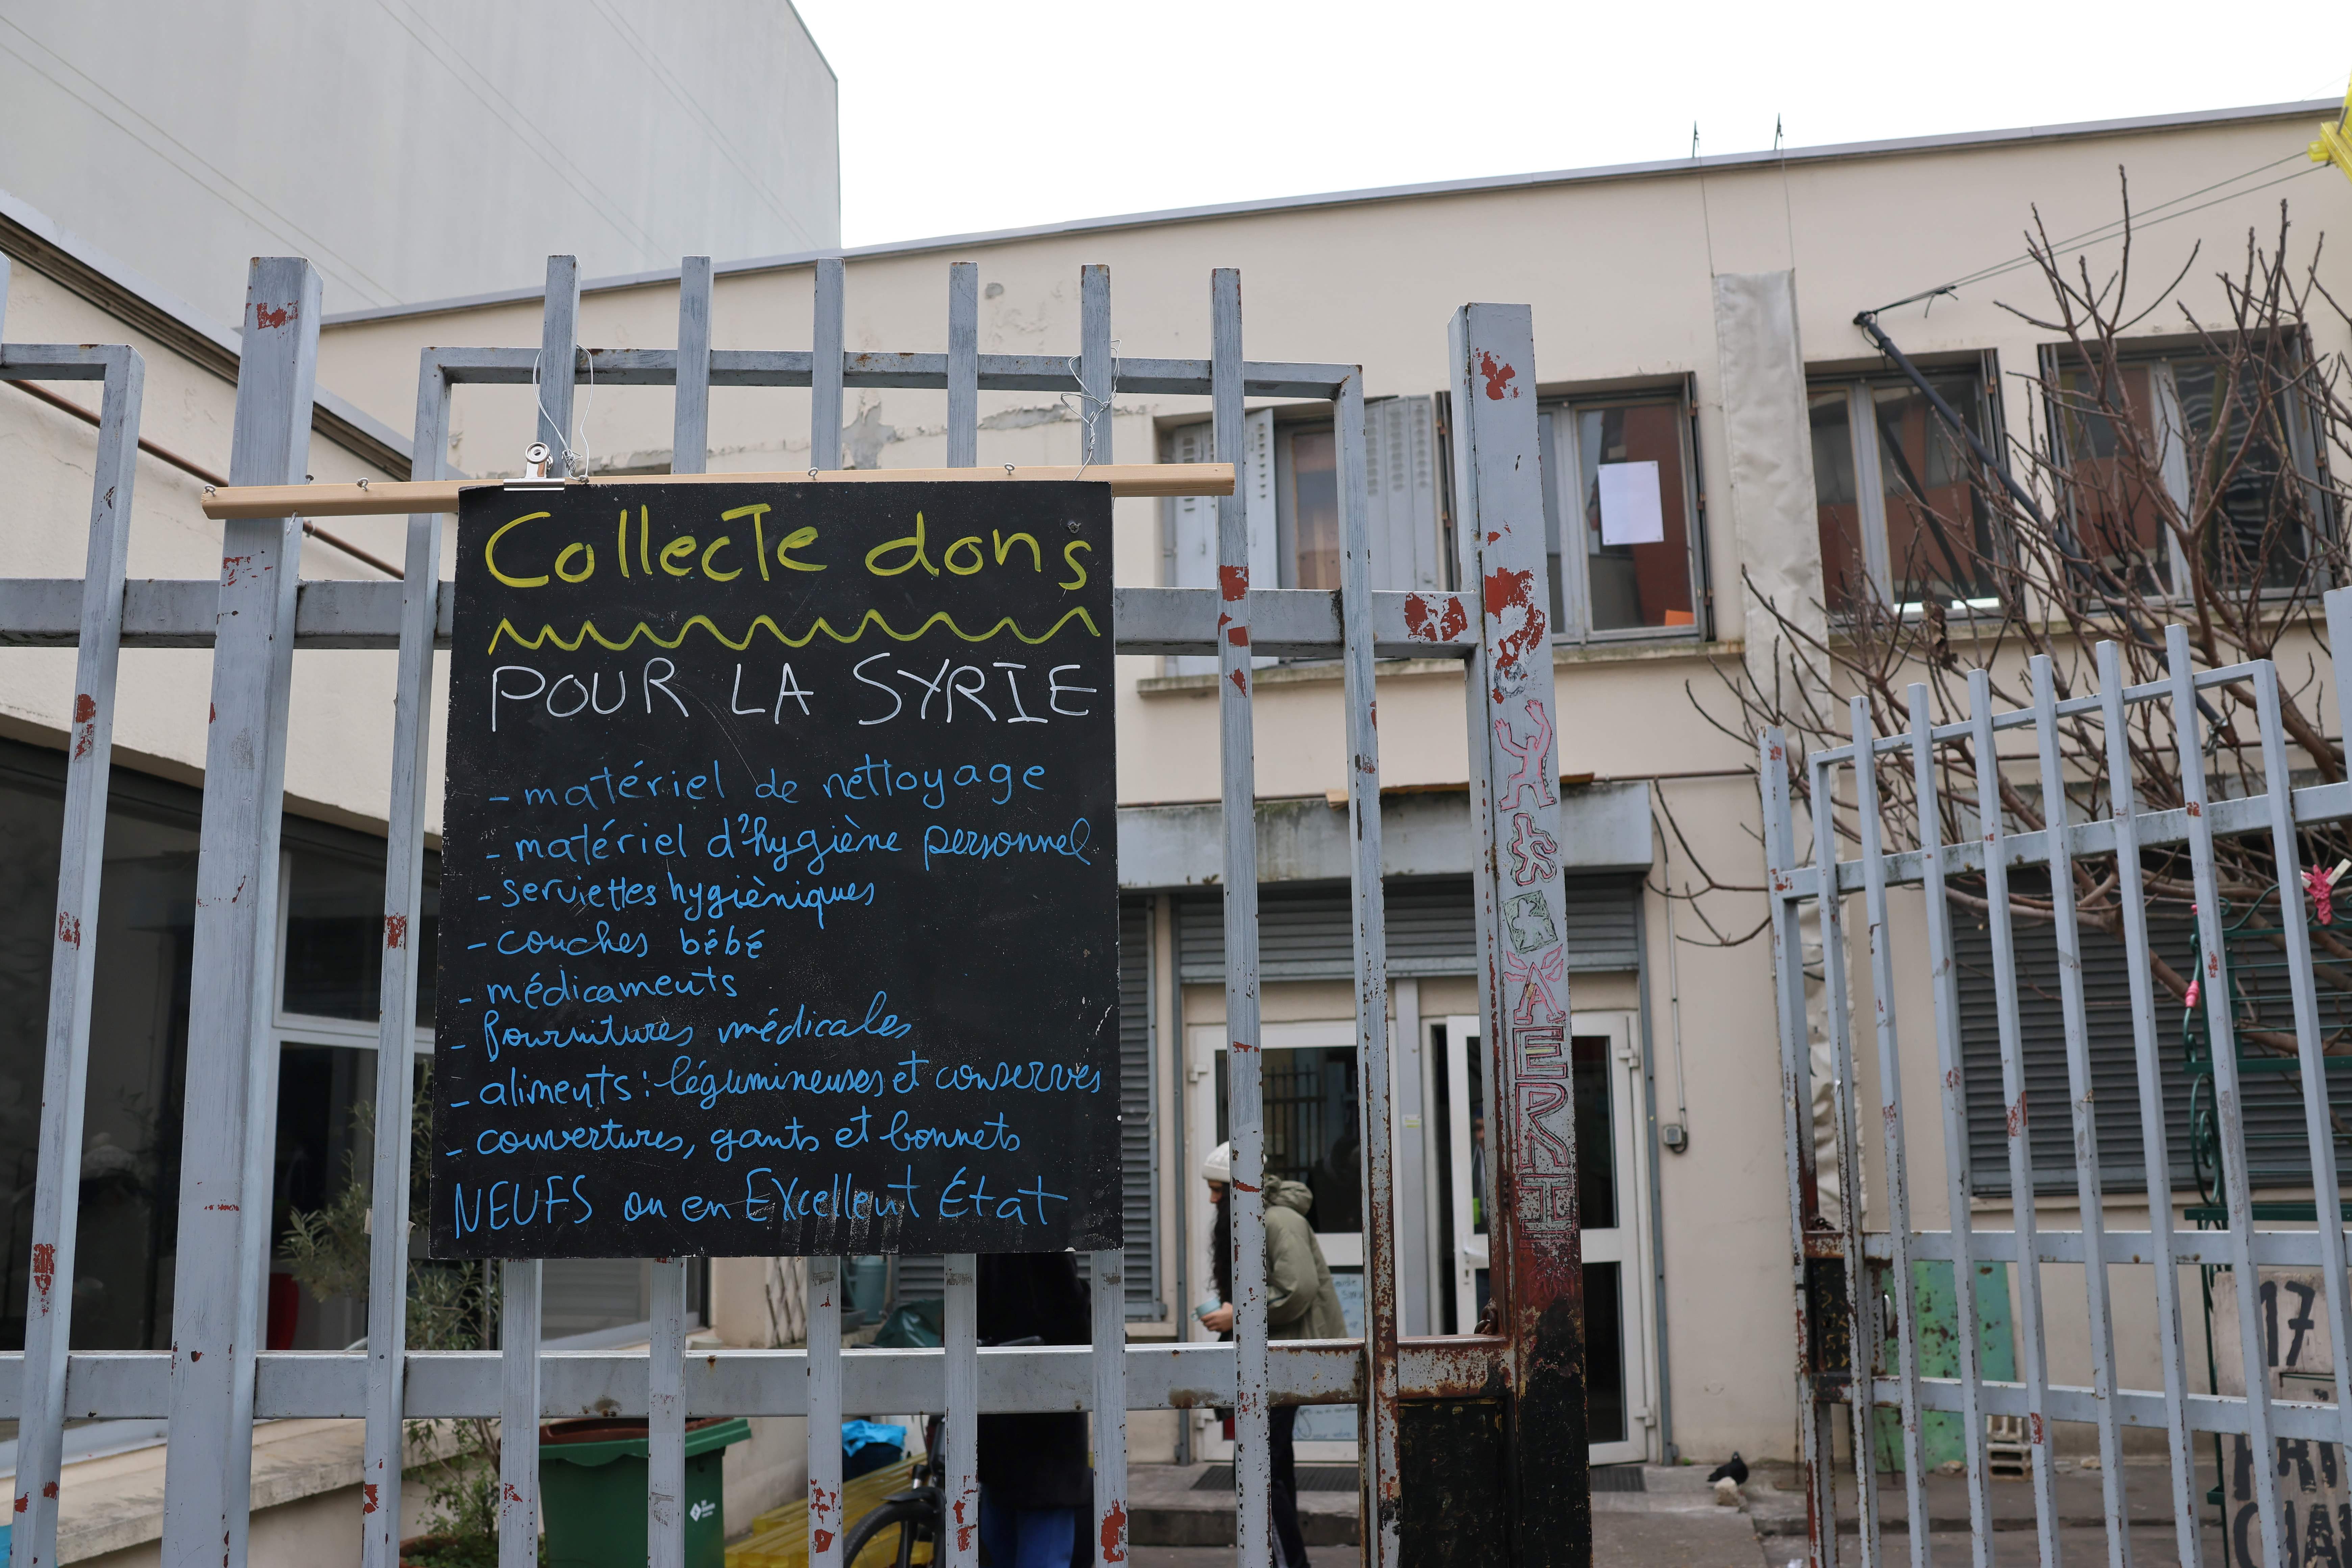 Collecte dons
POUR LA SYRIE
- matériel de nettoyage
- matériel d'hygiène personnel
- serviettes hygièniques
- couches bébé
- médicaments
- fournitures médicales
- aliments : légumineuses et conserves
- couvertures, gants et bonnets
NEUFS ou en Excellent État
AERI
17